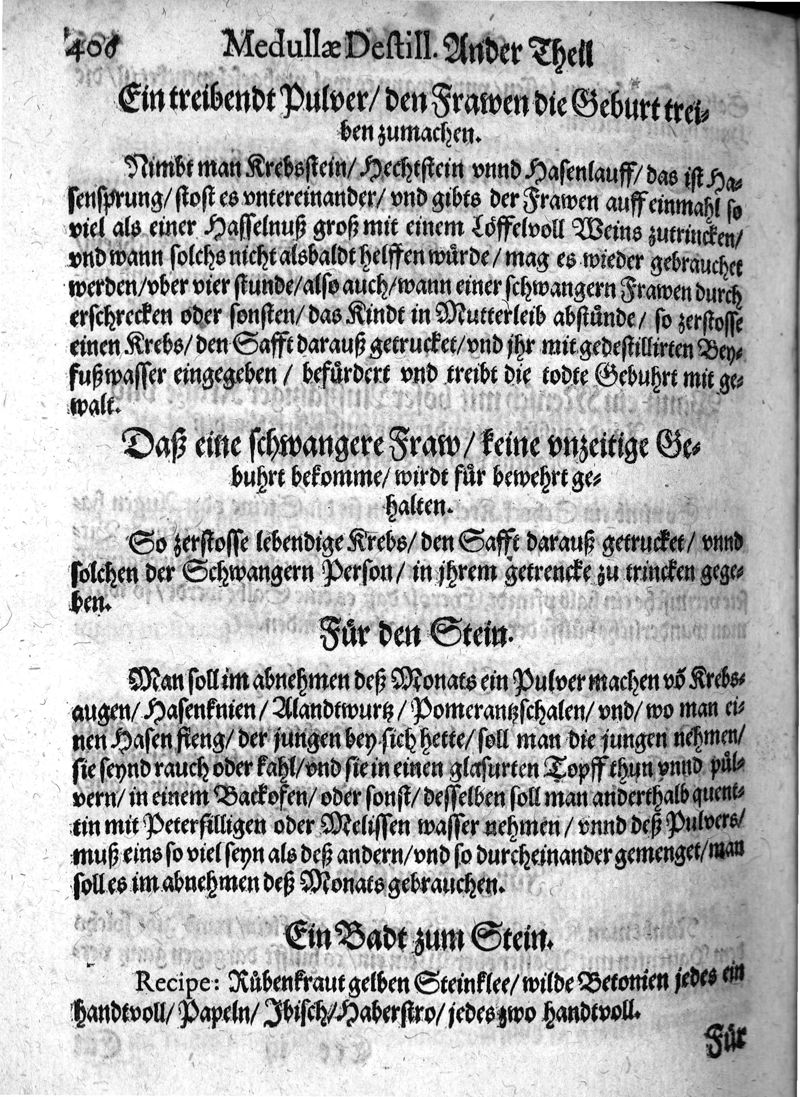 406 Medullæ Destill. Ander Theil
Ein treibendt Pulver/ den Frawen die Geburt trei-
ben zumachen.
Nimbt man Krebsstein/ Hechtstein vnnd Hasenlauff/ das ist Ha-
sensprung/ stost es vntereinander/ vnd gibts der Frawen auff einmahl so
viel als einer Hasselnuß groß mit einem Löffelvoll Weins zutrincken/
vnd wann solchs nicht alsbaldt helffen würde/ mag es wieder gebrauchet
werden/ vber vier stunde/ also auch/ wann einer schwangern Frawen durch
erschrecken oder sonsten/ das Kindt in Mutterleib abstünde/ so zerstosse
einen Krebs/ den Safft darauß getrucket/ vnd jhr mit gedestillirten Bey-
fußwasser eingegeben / befürdert vnd treibt die todte Gebuhrt mit ge-
walt.
Daß eine schwangere Fraw/ keine vnzeitige Ge-
buhrt bekomme/ wirdt für bewehrt ge-
halten.
So zerstosse lebendige Krebs/ den Safft darauß getrucket/ vnnd
solchen der Schwangern Person/ in jhrem getrencke zu trincken gege-
ben.
Für den Stein.
Man soll im abnehmen deß Monats ein Pulver machen võ Krebs-
augen/ Hasenknien/ Alandtwurtz/ Pomerantzschalen/ vnd/ wo man ei-
nen Hasen fieng/ der jungen bey sich hette/ soll man die jungen nehmen/
sie seynd rauch oder kahl/ vnd sie in einen glasurten Topff thun vnnd pül-
vern/ in einem Backofen/ oder sonst/ desselben soll man anderthalb quent-
tin mit Petersilligen oder Melissen wasser nehmen/ vnnd deß Pulvers/
muß eins so viel seyn als deß andern/ vnd so durcheinander gemenget/ man
soll es im abnehmen deß Monats gebrauchen.
Ein Badt zum Stein.
Recipe: Rübenkraut gelben Steinklee/ wilde Betonien jedes ein
handtvoll/ Papeln/ Ibisch/ Haberstro/ jedes zwo handtvoll.
Für